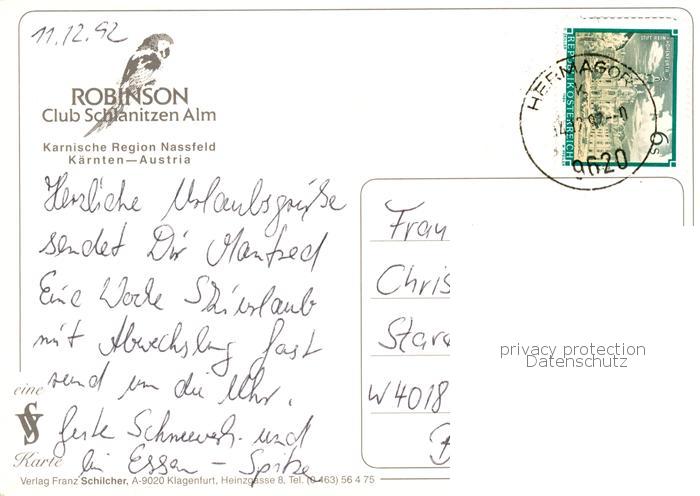 11.12.92
ROBINSON
Club Schlanitzen Alm
Karnische Region Nassfeld
Kärnten—Austria
Herzliche Urlaubsgrüße
sendet Dir Manfred
Eine Woche Skiurlaub
mit Abwechslung fast
rund um die Uhr.
gute Schneeverh. und
im Essen – Spitze
eine
Karte
Verlag Franz Schilcher, A-9020 Klagenfurt, Heinzgasse 8, Tel. (0 463) 56 4 75
STIFT REIN
REPUBLIK ÖSTERREICH
6 S
HERMAGOR
9620
Frau
Chris
W 4018
privacy protection
Datenschutz